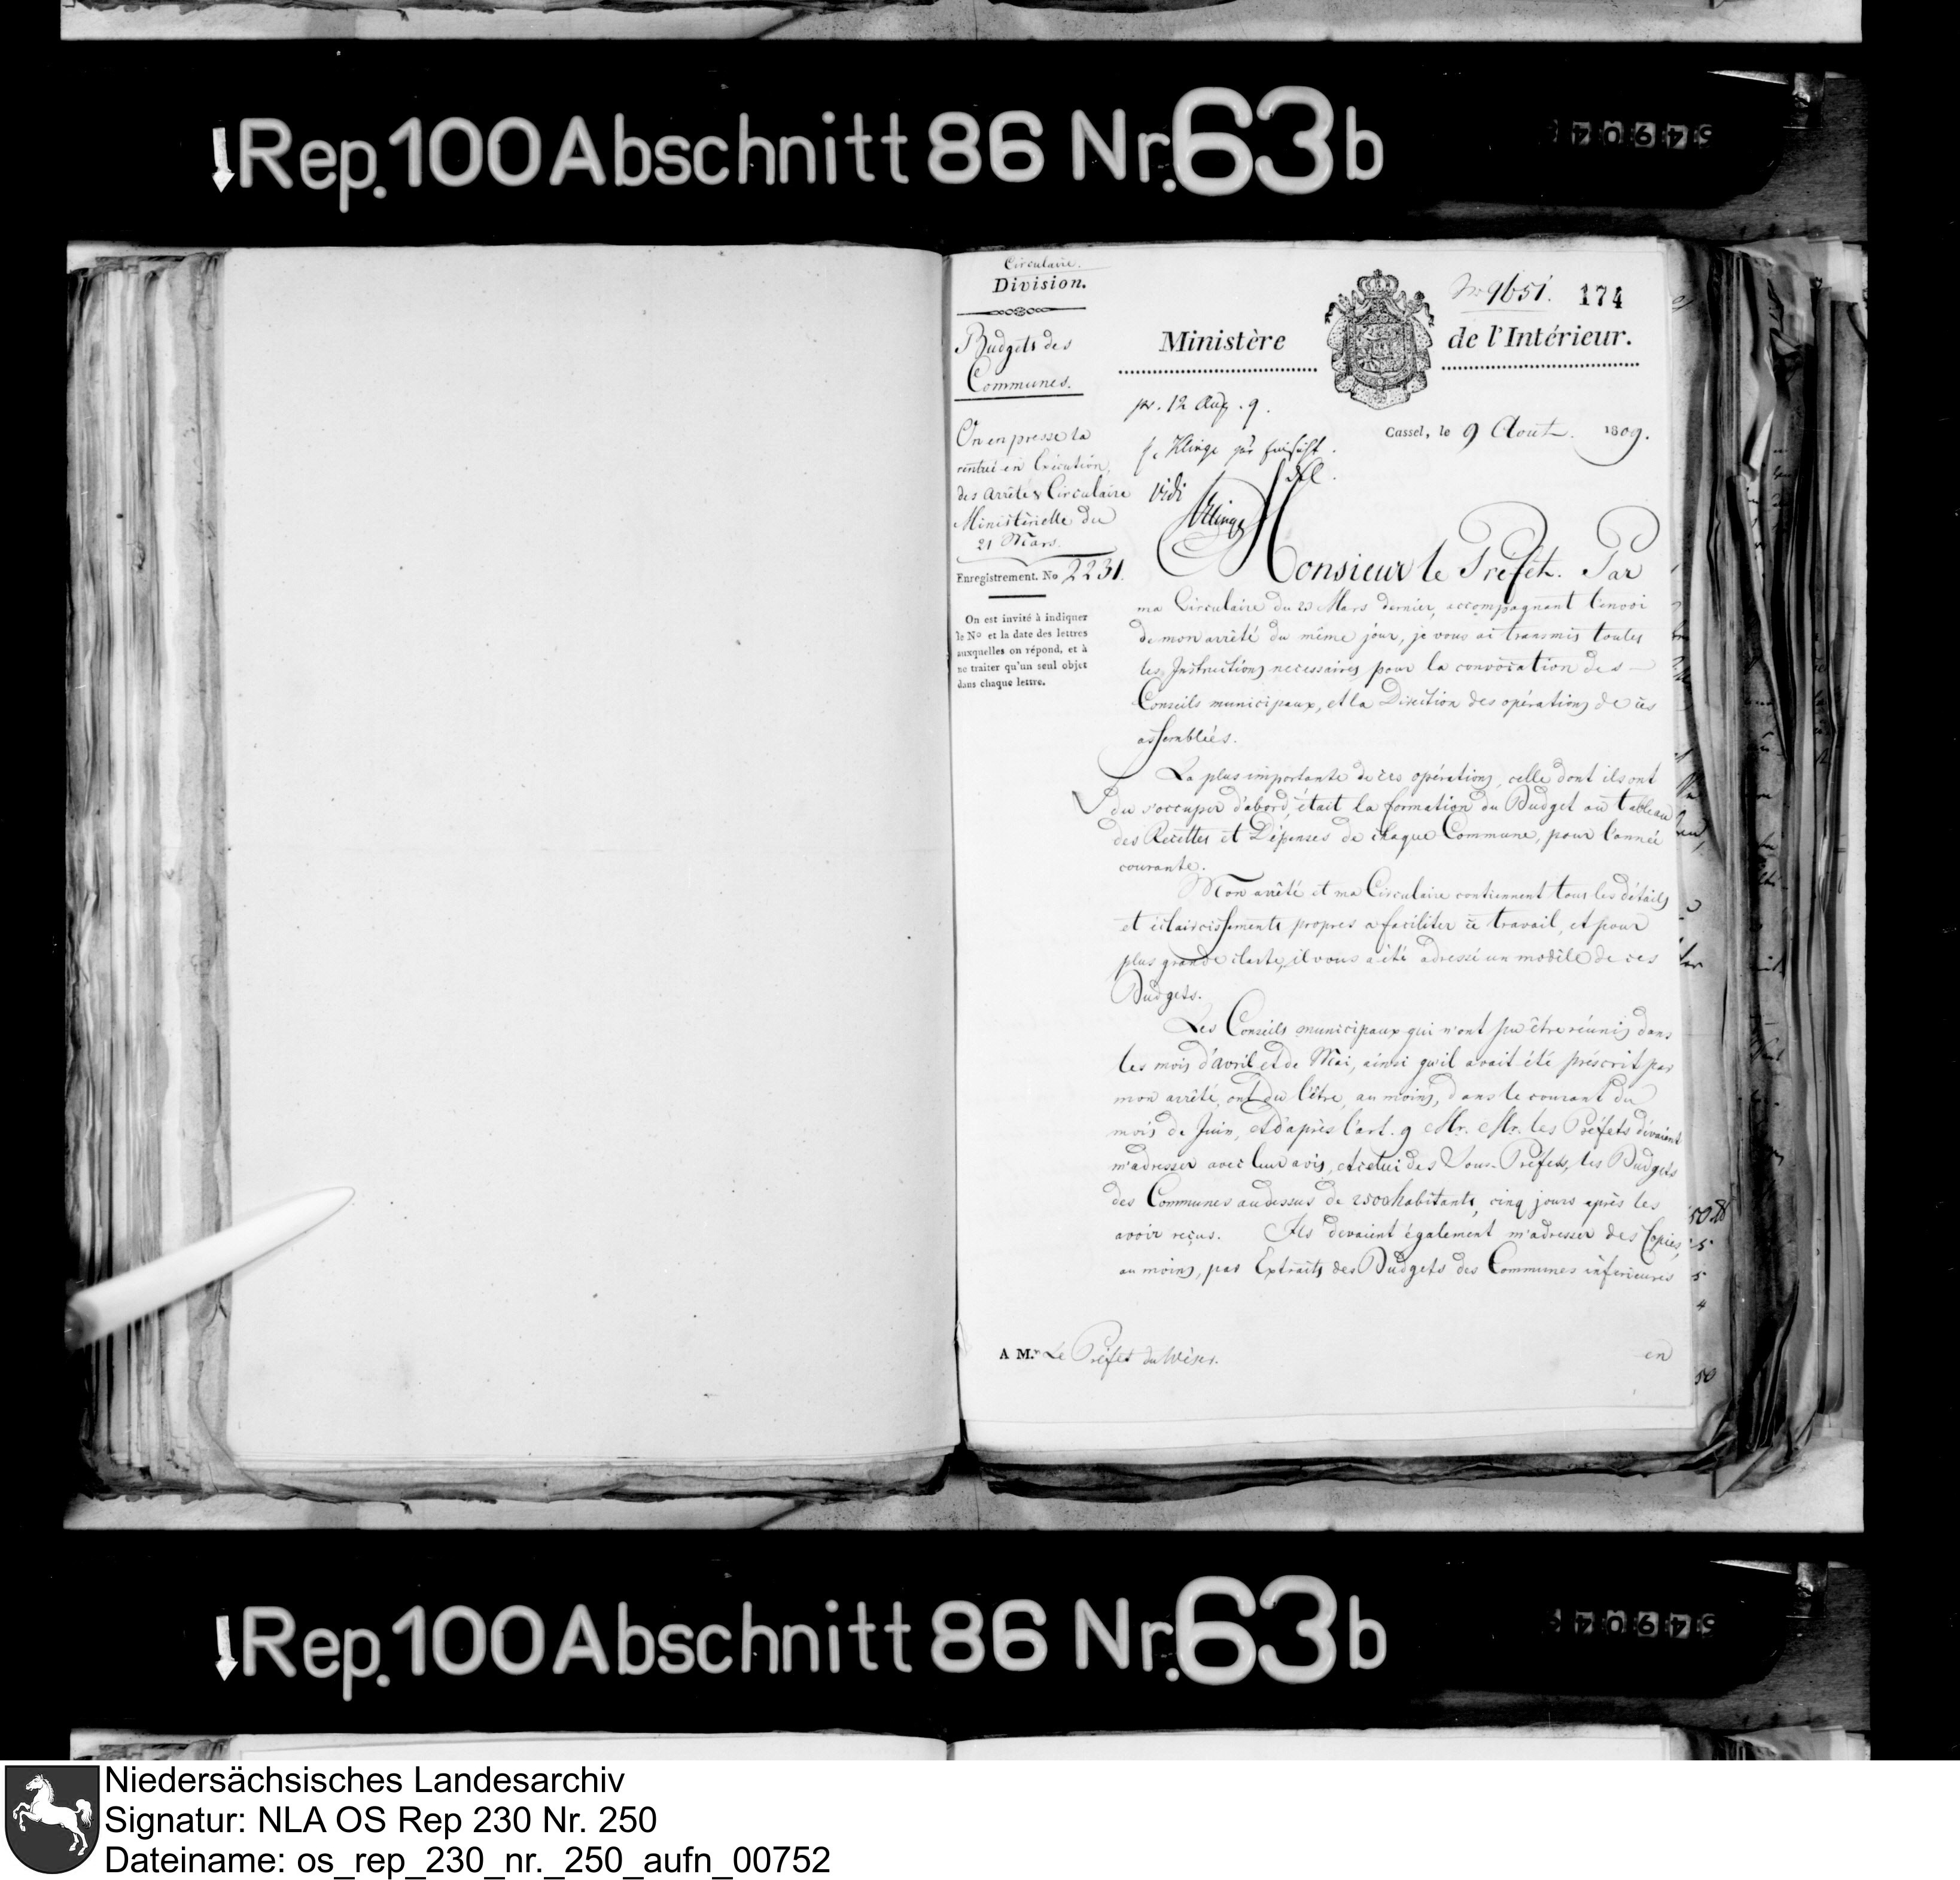 Rep. 100 Abschnitt 86 Nr. 63b
Circulaire.
Division.
Budgets des
Communes.
On en presse la
rentrée en Exécution
des Arrêté & Circulaire
Ministérielle du
21 Mars.
Enregistrement. No 2231.
On est invité à indiquer
le No et la date des lettres
auxquelles on répond, et à
ne traiter qu'un seul objet
dans chaque lettre.
No 9651. 174
Ministère de l'Intérieur.
pr. 12 Aug. 9.
Cassel, le 9 Aout. 1809.
H. Klinge zur Einsicht.
vidi
Klinge
Monsieur le Préfet. Par
ma Circulaire du 21 Mars dernier, accompagnant l'envoi
de mon arrêté du même jour, je vous ai transmis toutes
les Instructions necessaires pour la convocation des
Conseils municipaux, et la Direction des opérations de ces
assemblées.
La plus importante de ces opérations, celle dont ils ont
du s'occuper d'abord, était la formation du Budget ou tableau
des Recettes et Dépenses de chaque Commune, pour l'année
courante.
Mon arrêté et ma Circulaire contiennent tous les détails
et éclaircissements propres a faciliter ce travail, et pour
plus grande clarté, il vous a été adressé un modèle de ces
Budgets.
Les Conseils municipaux qui n'ont pu être réunis dans
les mois d'avril et de Mai, ainsi qu'il avait été préscrit par
mon arrêté, ont du l'être, au moins, dans le courant du
mois de Juin, et d'après l'art. 9 Mr. Mr. les Préfets devaient
m'adresser avec leur avis, et celui des Sous-Préfets, les Budgets
des Communes audessus de 2500 habitants, cinq jours après les
avoir reçus. Ils devaient également m'adresser des Copies,
au moins, par Extraits des Budgets des Communes inférieures
A M.r Le Préfet du Wéser.
en
Rep. 100 Abschnitt 86 Nr. 63b
Niedersächsisches Landesarchiv
Signatur: NLA OS Rep 230 Nr. 250
Dateiname: os_rep_230_nr._250_aufn_00752